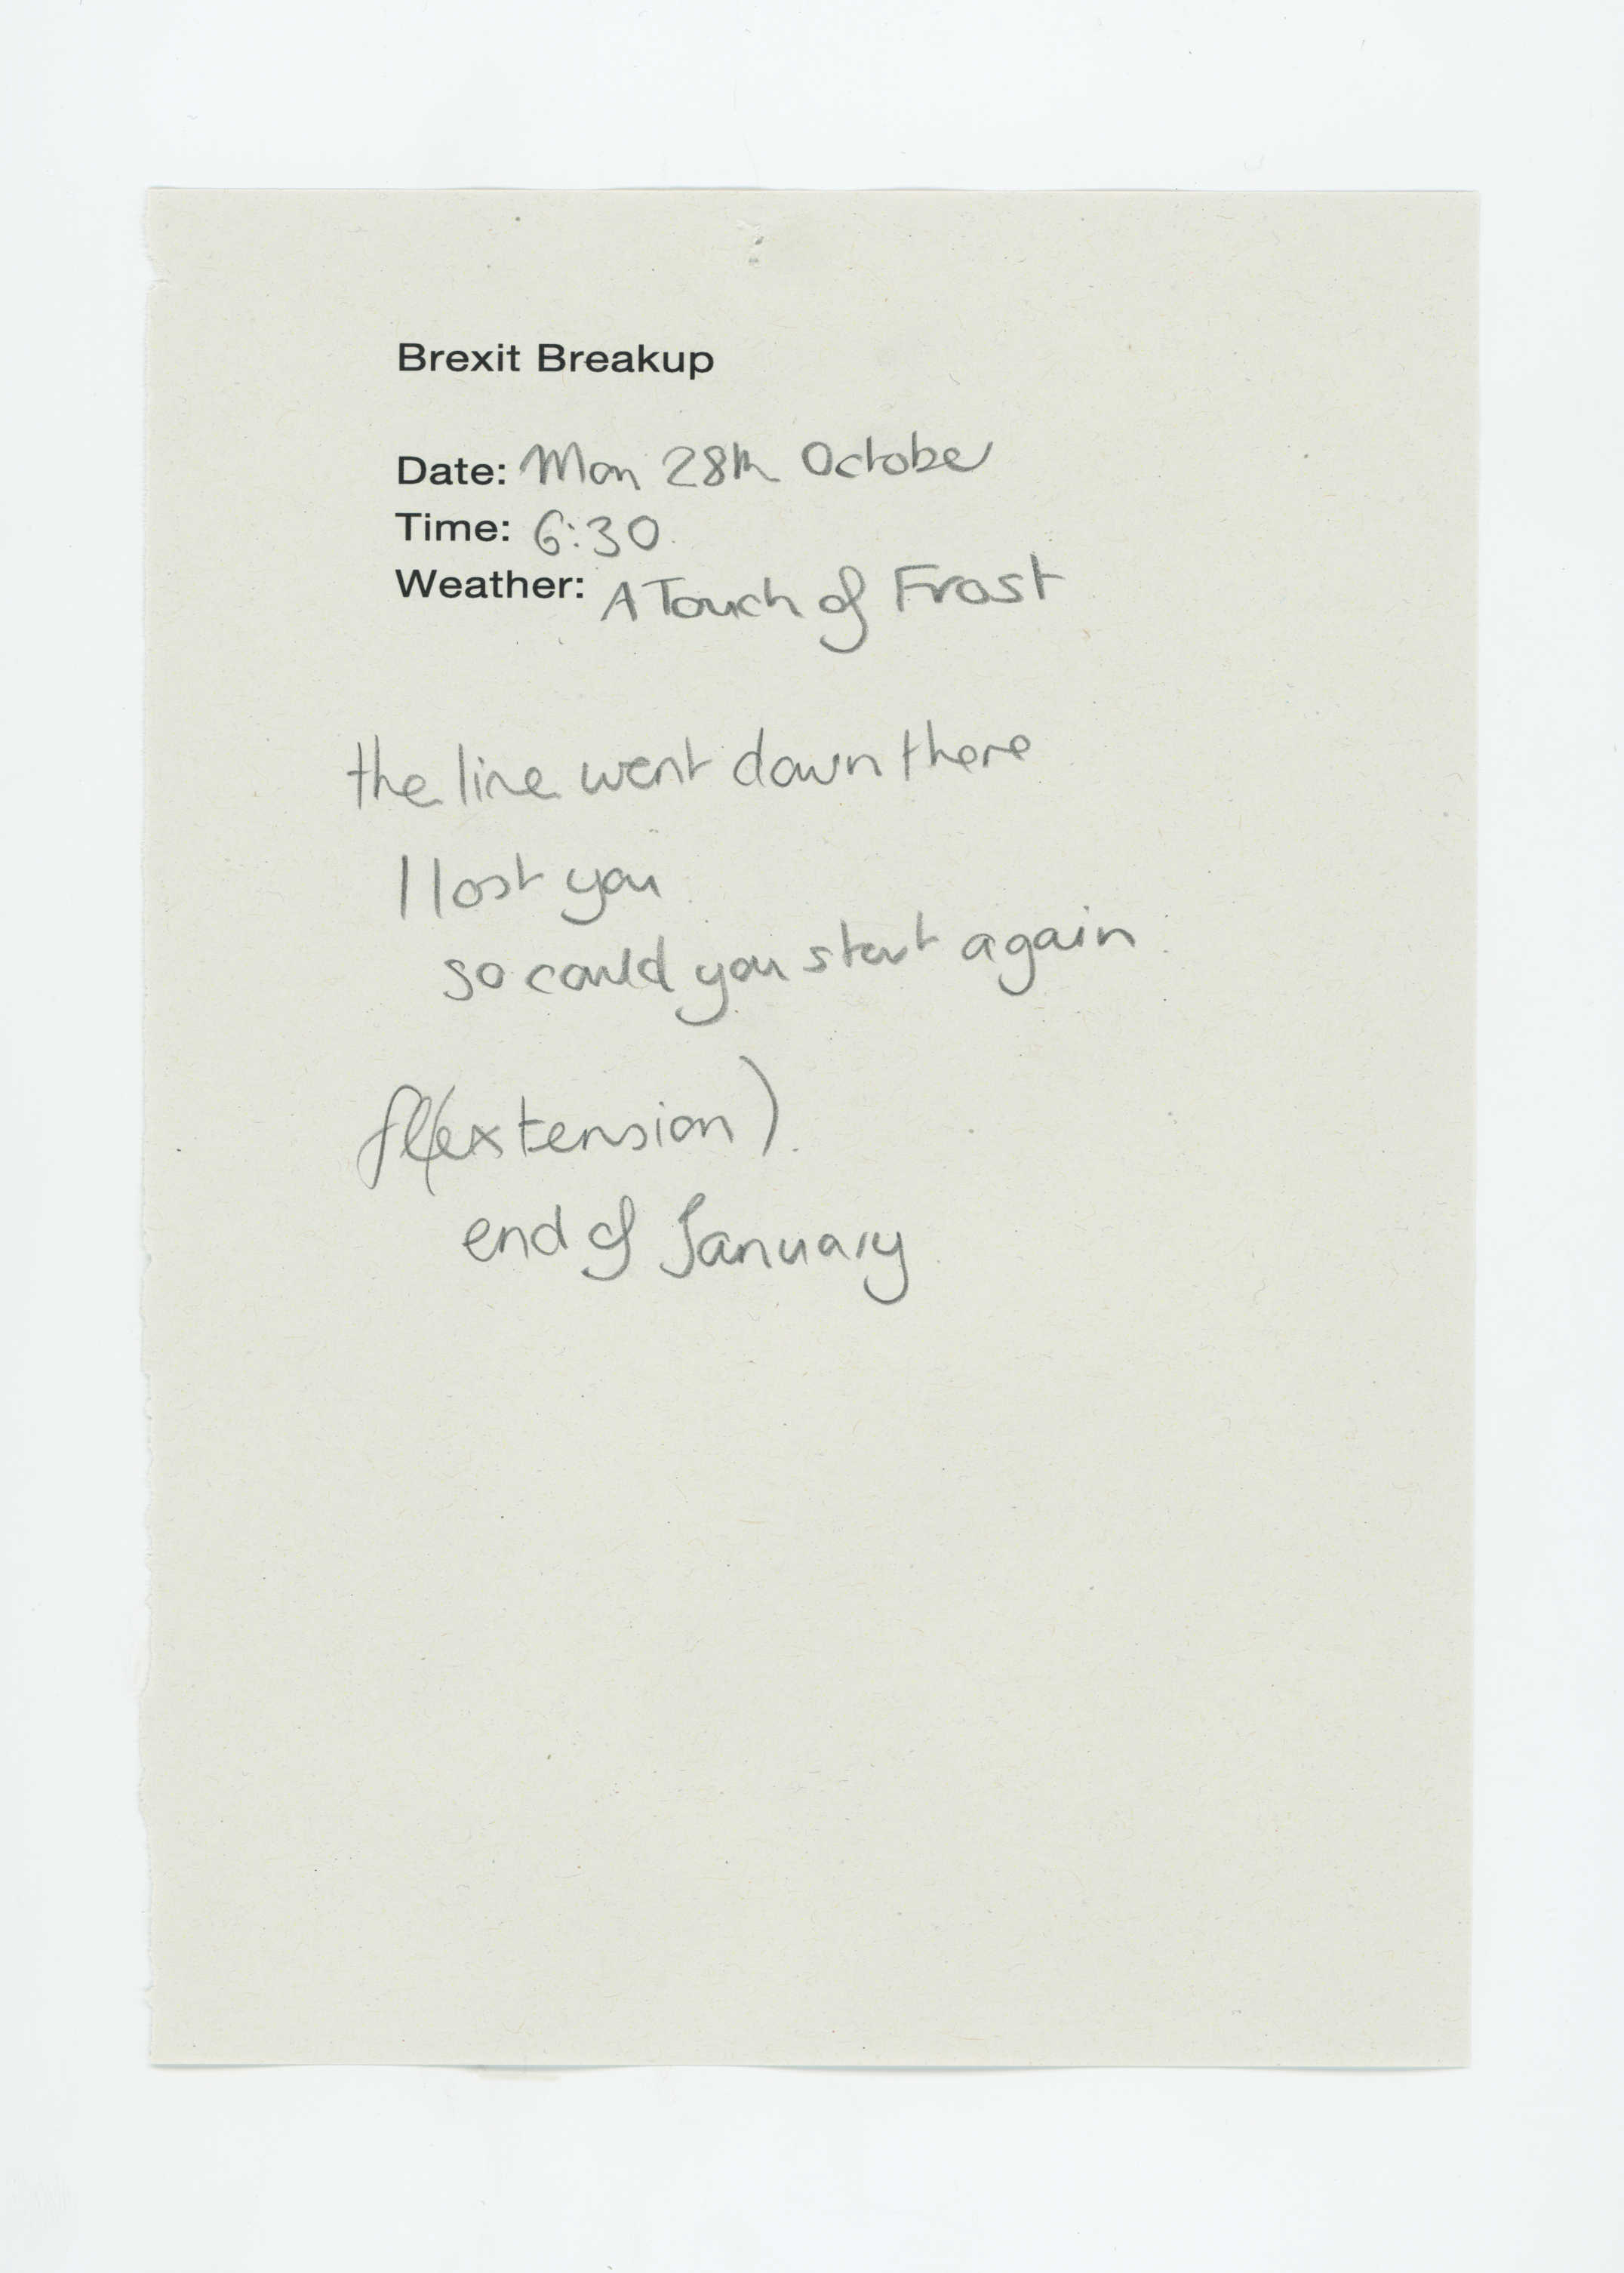 Brexit Breakup
Date: Mon 28th October
Time: 6:30
Weather: A Touch of Frost
the line went down there
I lost you
so could you start again
fl(extension)
end of January